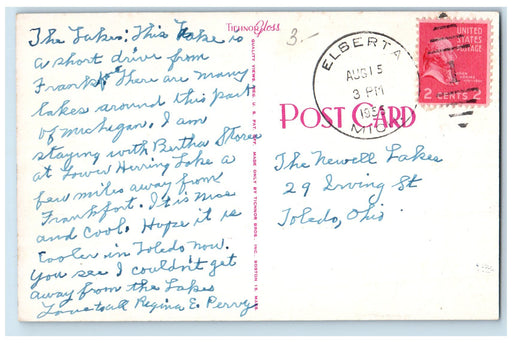 TICHNOR Gloss
3.-
The Lakes: This Lake is
a short drive from
Frankft. There are many
lakes around this part
of michegan. I am
staying with Bertha Storer
at Lower Herring Lake a
few miles away from
Frankfort. It is nice
and cool. Hope it is
cooler in Toledo now.
You see I couldn't get
away from the Lakes
Love to all Regina E. Perry
QUALITY VIEWS, REG. U. S. PAT. OFF. MADE ONLY BY TICHNOR BROS. INC. BOSTON 15, MASS.
ELBERTA
AUG 15
3 PM
MICH
UNITED
STATES
POSTAGE
2 CENTS 2
POST CARD
The Newell Lakes
29 Irving St
Toledo, Ohio.